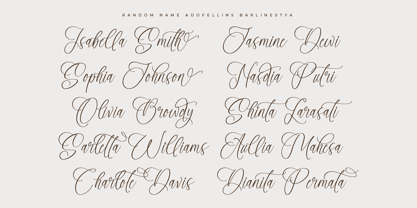 RANDOM NAME ADOFELLINS BARLINESTYA
Isabella Smith Jasmine Dewi
Sophia Johnson Nasdia Putri
Olivia Browdy Shinta Larasati
Scarletta Williams Aullia Mahesa
Charlote Davis Dianita Permata